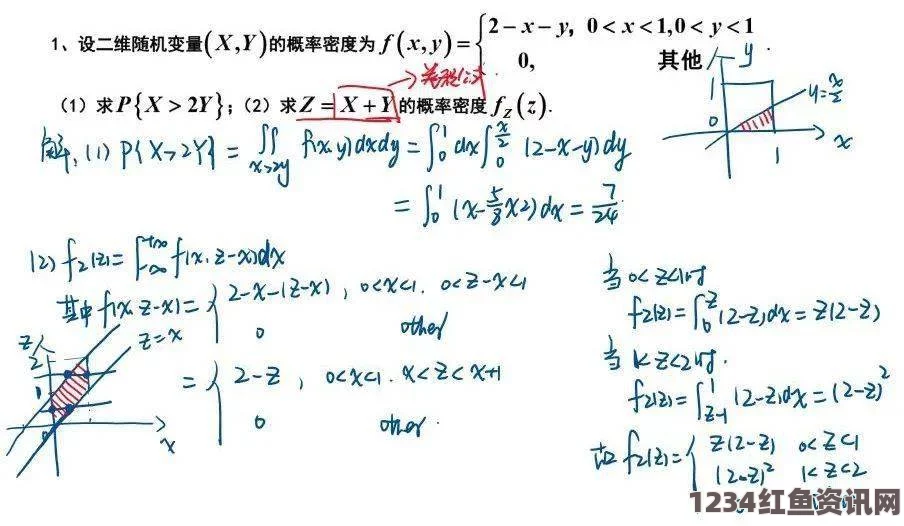 1、设二维随机变量(X,Y)的概率密度为 f(x,y)={2-x-y, 0<x<1,0<y<1
0, 其他
卷积公式
(1) 求P{X>2Y}; (2) 求Z=X+Y的概率密度f_Z(z).
y
1
0
1
x
y=x/2
解: (1) P{X>2Y} = ∬_{x>2y} f(x,y)dxdy = ∫_0^1 dx∫_0^{x/2} (2-x-y)dy
= ∫_0^1 (x-5/8x2)dx = 7/24
(2) f_Z(z)=∫_{-∞}^{+∞} f(x,z-x)dx
其中 f(x,z-x)={2-x-(z-x), 0<x<1, 0<z-x<1
0 other
= {2-z, 0<x<1, x<z<x+1
0 other.
z
2
1
0
x
z=x
当0<z<1时
f_Z(z)=∫_0^z (2-z)dx=z(2-z)
当1<z<2时.
f_Z(z)=∫_{z-1}^1 (2-z)dx=(2-z)^2
故 f_Z(z)={z(2-z) 0<z<1
(2-z)^2 1<z<2
1234红鱼资讯网